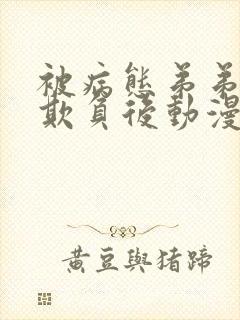 被病態弟弟
欺負後動漫
黃豆與猪蹄